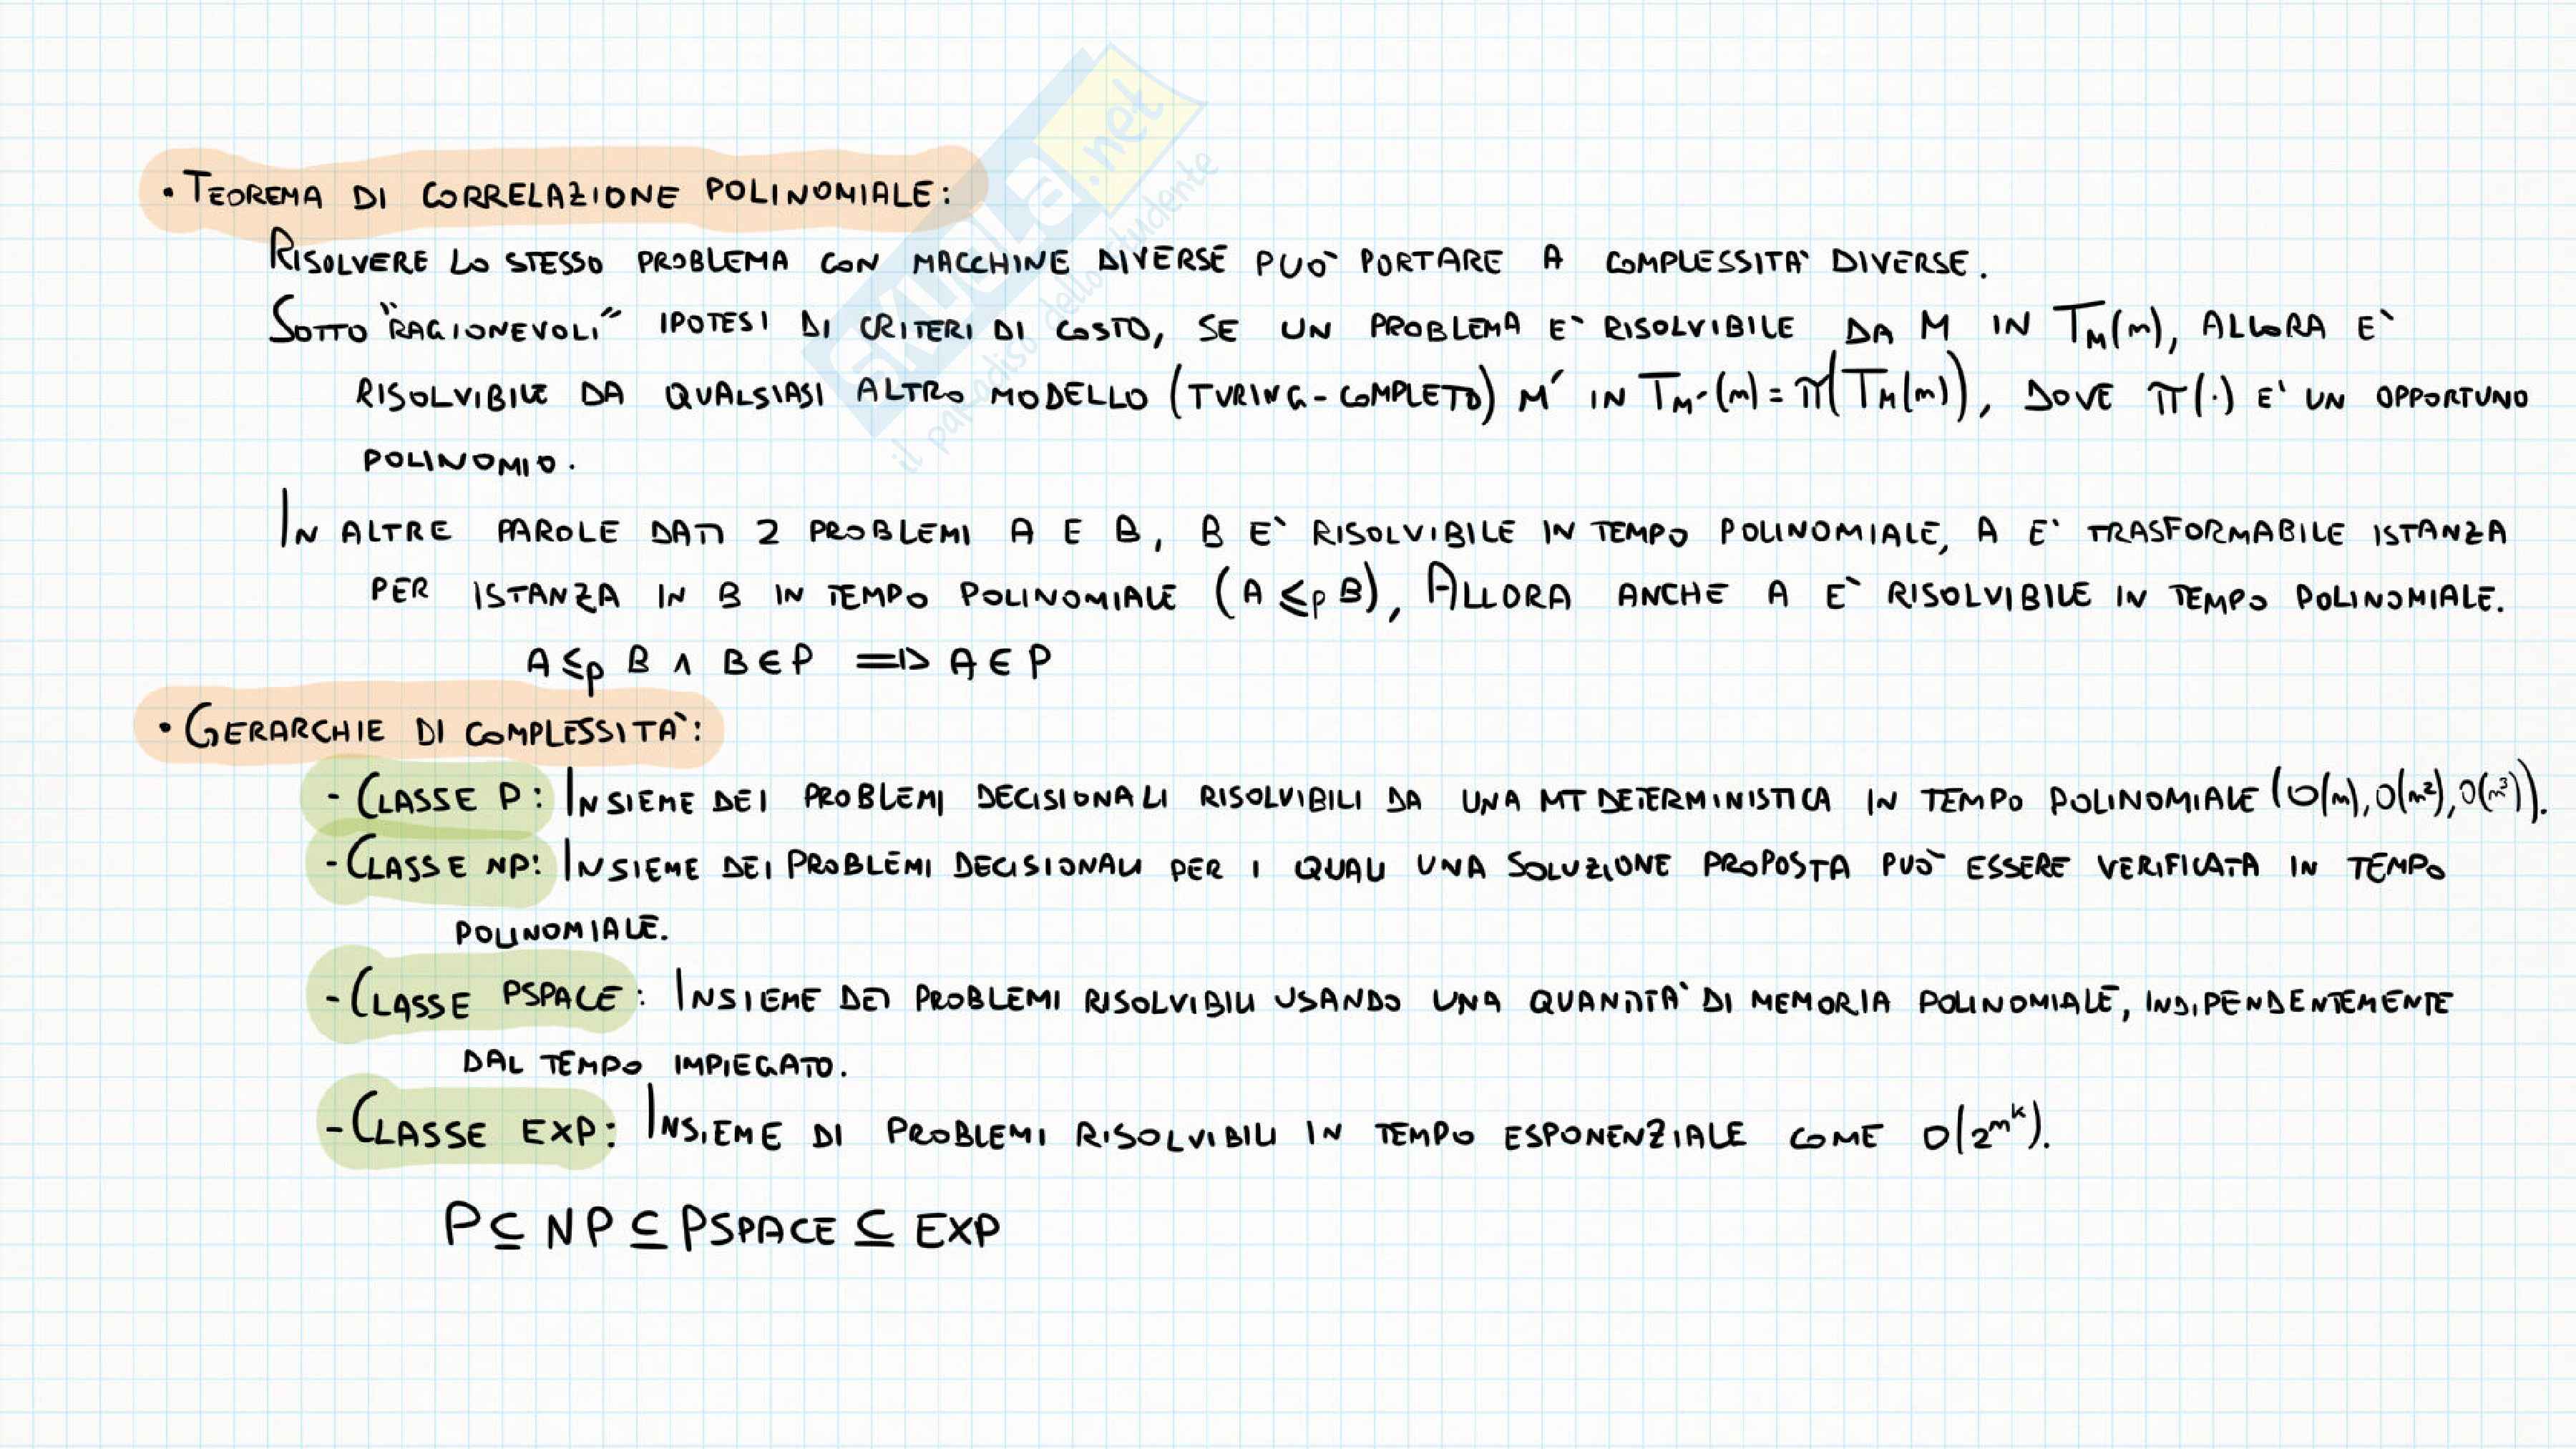 • TEOREMA DI CORRELAZIONE POLINOMIALE:
RISOLVERE LO STESSO PROBLEMA CON MACCHINE DIVERSE PUO' PORTARE A COMPLESSITA' DIVERSE.
SOTTO "RAGIONEVOLI" IPOTESI DI CRITERI DI COSTO, SE UN PROBLEMA E' RISOLVIBILE DA M IN T_M(m), ALLORA E'
RISOLVIBILE DA QUALSIASI ALTRO MODELLO (TURING-COMPLETO) M' IN T_M'(m) = π(T_M(m)), DOVE π(·) E' UN OPPORTUNO
POLINOMIO.
IN ALTRE PAROLE DATI 2 PROBLEMI A E B, B E' RISOLVIBILE IN TEMPO POLINOMIALE, A E' TRASFORMABILE ISTANZA
PER ISTANZA IN B IN TEMPO POLINOMIALE (A ≤p B), ALLORA ANCHE A E' RISOLVIBILE IN TEMPO POLINOMIALE.
A ≤p B ∧ B ∈ P ⇒ A ∈ P
• GERARCHIE DI COMPLESSITA':
- CLASSE P: INSIEME DEI PROBLEMI DECISIONALI RISOLVIBILI DA UNA MT DETERMINISTICA IN TEMPO POLINOMIALE (O(m), O(m²), O(m³)).
- CLASSE NP: INSIEME DEI PROBLEMI DECISIONALI PER I QUALI UNA SOLUZIONE PROPOSTA PUO' ESSERE VERIFICATA IN TEMPO
POLINOMIALE.
- CLASSE PSPACE: INSIEME DEI PROBLEMI RISOLVIBILI USANDO UNA QUANTITA' DI MEMORIA POLINOMIALE, INDIPENDENTEMENTE
DAL TEMPO IMPIEGATO.
- CLASSE EXP: INSIEME DI PROBLEMI RISOLVIBILI IN TEMPO ESPONENZIALE COME O(2^m^k).
P ⊆ NP ⊆ PSPACE ⊆ EXP
SKUOLa.net
il paradiso dello studente